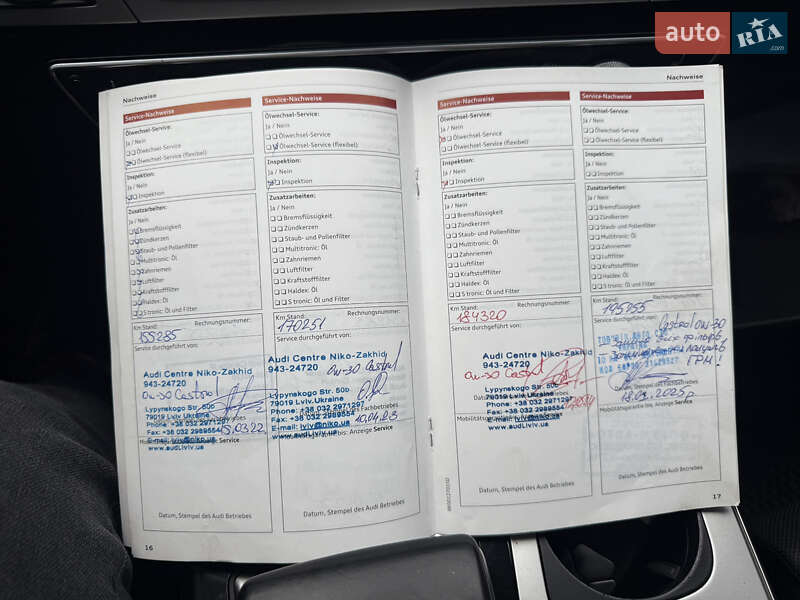 auto RIA.com
Nachweise
Service-Nachweise
Ölwechsel-Service:
Ja / Nein
Ölwechsel-Service
Ölwechsel-Service (flexibel)
Inspektion:
Ja / Nein
Inspektion
Zusatzarbeiten:
Ja / Nein
Bremsflüssigkeit
Zündkerzen
Staub- und Pollenfilter
Multitronic: Öl
Zahnriemen
Luftfilter
Kraftstofffilter
Haldex: Öl
S tronic: Öl und Filter
Km Stand: Rechnungsnummer:
155285
Service durchgeführt von:
Audi Centre Niko-Zakhid
943-24720
0w-30 Castrol
Lypynskogo Str. 50b
79019 Lviv Ukraine
Phone: +38 032 2971297
Fax: +38 032 2989554
E-mail: lviv@niko.ua
www.audi.lviv.ua
15.03.22
Datum, Stempel des Audi Betriebes
16
Service-Nachweise
Ölwechsel-Service:
Ja / Nein
Ölwechsel-Service
Ölwechsel-Service (flexibel)
Inspektion:
Ja / Nein
Inspektion
Zusatzarbeiten:
Ja / Nein
Bremsflüssigkeit
Zündkerzen
Staub- und Pollenfilter
Multitronic: Öl
Zahnriemen
Luftfilter
Kraftstofffilter
Haldex: Öl
S tronic: Öl und Filter
Km Stand: Rechnungsnummer:
170251
Service durchgeführt von:
Audi Centre Niko-Zakhid
943-24720
0w-30 Castrol
Lypynskogo Str. 50b
79019 Lviv.Ukraine
Phone: +38 032 2971297
Fax: +38 032 2989554
E-mail: lviv@niko.ua
www.audi.lviv.ua
bis: Anzeige Service
10.04.23
Datum, Stempel des Audi Betriebes
Nachweise
Service-Nachweise
Ölwechsel-Service:
Ja / Nein
Ölwechsel-Service
Ölwechsel-Service (flexibel)
Inspektion:
Ja / Nein
Inspektion
Zusatzarbeiten:
Ja / Nein
Bremsflüssigkeit
Zündkerzen
Staub- und Pollenfilter
Multitronic: Öl
Zahnriemen
Luftfilter
Kraftstofffilter
Haldex: Öl
S tronic: Öl und Filter
Km Stand: Rechnungsnummer:
184320
Service durchgeführt von:
Audi Centre Niko-Zakhid
943-24720
0w-30 Castrol
Lypynskogo Str. 50b
79019 Lviv.Ukraine
Phone: +38 032 2971297
Fax: +38 032 2989554
E-mail: lviv@niko.ua
www.audi.lviv.ua
Datum, Stempel des Audi Betriebes
Service-Nachweise
Ölwechsel-Service:
Ja / Nein
Ölwechsel-Service
Ölwechsel-Service (flexibel)
Inspektion:
Ja / Nein
Inspektion
Zusatzarbeiten:
Ja / Nein
Bremsflüssigkeit
Zündkerzen
Staub- und Pollenfilter
Multitronic: Öl
Zahnriemen
Luftfilter
Kraftstofffilter
Haldex: Öl
S tronic: Öl und Filter
Km Stand: Rechnungsnummer:
195255
Service durchgeführt von:
Castrol 0w-30
ГРМ!
Datum, Stempel des Fachbetriebes
Mobilitätsgarantie bis: Anzeige Service
18.03.2025р
Datum, Stempel des Audi Betriebes
17